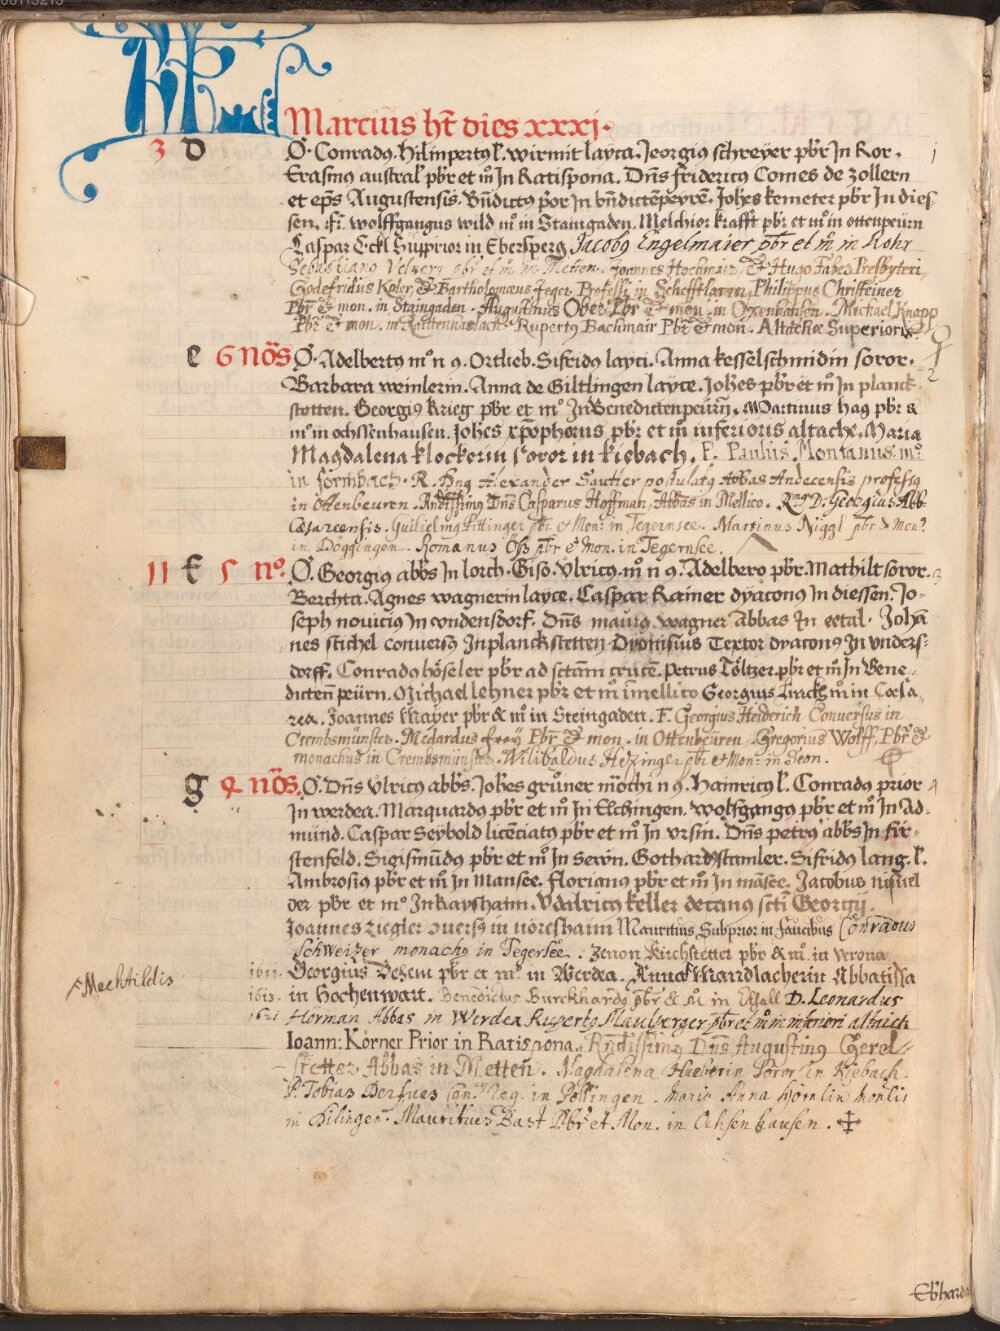 KL
Marcius ht dies xxxj.
3 D O. Conradus. Hilmpertus l. wirmit layca. Jeorgius schreyer pbr In Ror.
Erasmus austral pbr et mo In Ratispona. Dns fridericus Comes de zollern
et eps Augustensis. Bndictus por In bndictenpeyrn. Johes kemeter pbr In dies
sen. fr. wolffgangus wild mo in Staingaden. Melchior krafft pbr et mo in ottenpeurn
Caspar Eckl Supprior in Ebersperg Jacobg Engelmaier pbr et m in Rohr
pbr et m in Metten. Joannes Hochmair, & Hugo Faber Presbyteri
Godefridus Koler & Bartholomæus Jeger Professi in Schefftlarn Philippus Christeiner
Pbr & mon. in Staingaden. Augustinus Ober Pbr & mon. in Oxenhausen. Michael Knapp
Pbr & mon. in Raittenhaslach. Ruperty Bachmair Pbr & mon. Altachæ Superioris
e 6 nos O. Adelbertus mo n 9. Ortlieb. Sifridus layci. Anna kesselschmidin soror.
Barbara weinlerin. Anna de Giltlingen layce. Johes pbr et mo In planck
stetten. Georgius krieg pbr et mo In Benedictenpeurn. Martinus hag pbr &
mo in ochssenhausen. Johes xpophorus pbr et mo inferioris altache. Maria
Magdalena klockerin soror in kiebach. P. Paulus Montanus. mo
in formbach. R. Dng Alexander Sautter postulatg Abbas Andecensis professg
in Ottenbeuren. Dns Casparus Hoffman, Abbas in Mellico. Rmg D. Georgius Abb.
Cæsareensis. Guilielmg Pittinger pbr et Mon: in Tegernsee. Martinus Niggl pbr & mon.
in Döggingen. Romanus Öss pbr & mon. in Tegernsee.
11 f 5 no. O. Georgius abbs In lorch. Giso. Ulricus. mo n 9. Adelbero pbr. Mathilt soror.
Berchta. Agnes wagnerin layce. Caspar Rainer dyaconus In diessen. Jo-
seph novicius In condensdorf. Dns maurus wagner Abbas In oetal. Johan
nes stichel conversus In planckstetten. Dyonisius Textor dyaconus In unders-
dorff. Conradus höseler pbr ad sctam crucem. Petrus Töltzer pbr et mo In Bene-
dicten peurn. Michael lehner pbr et mo in mellico Georgius Linckh mo in Cæsa
rea. Joannes Mayer pbr & mo in Steingaden. F. Georgius Heiderich Conversus in
Crembsmünster. Medardus frey Pbr & mon. in Ottenbeüren. Gregorius Wolff, Pbr &
monachus in Crembsmünster. Wilibaldus Hezinger pbr et Mon: in Seon.
g 4 nos. O. Dns Ulricus abbs. Johes gruoner mochi n 9. Hainricus l. Conradus prior
In werdea. Marquardus pbr et mo In Elchingen. wolfgangus pbr et mo In Ad-
mund. Caspar Seybold licenciatus pbr et mo In ursin. Dns petrus abbs In für-
stenfeld. Sigismundus pbr et mo In Sewn. Gothardus stamler. Sifridus lang. l.
Ambrosius pbr et mo In Mansee. Florianus pbr et mo In mansee. Jacobus
der pbr et mo In kayshaim. Udalricus keller decanus scti Georgij.
Joannes ziegler in nöreshaim Mauritius Subprior in faucibus Conradus
Schweizer monachg in Tegersee. Zenon Kirchstetter pbr & m. in verona
1611. Georgius Dehem pbr et mo in Werdea. Anna Mandlacherin Abbatissa
1613. in Hochenwart. Benedictus Burckhardg pbr & M in D. Leonardus
1621 Horman Abbas in Werdea Ruperty pbr et m in inferiori altaich
Ioann: Körner Prior in Ratispona. Rndissimg Dns Augusting Gerel-
stetter Abbas in Metten. Magdalena Hueberin Soror in Kiebach.
P. Tobias in Pollingen. Maria Anna Hörnlin
in Dilingen. Mauritius Bast Pbr et Mon. in Ochsenhausen.
Mechtildis
1
2
3
4
Ebhardg